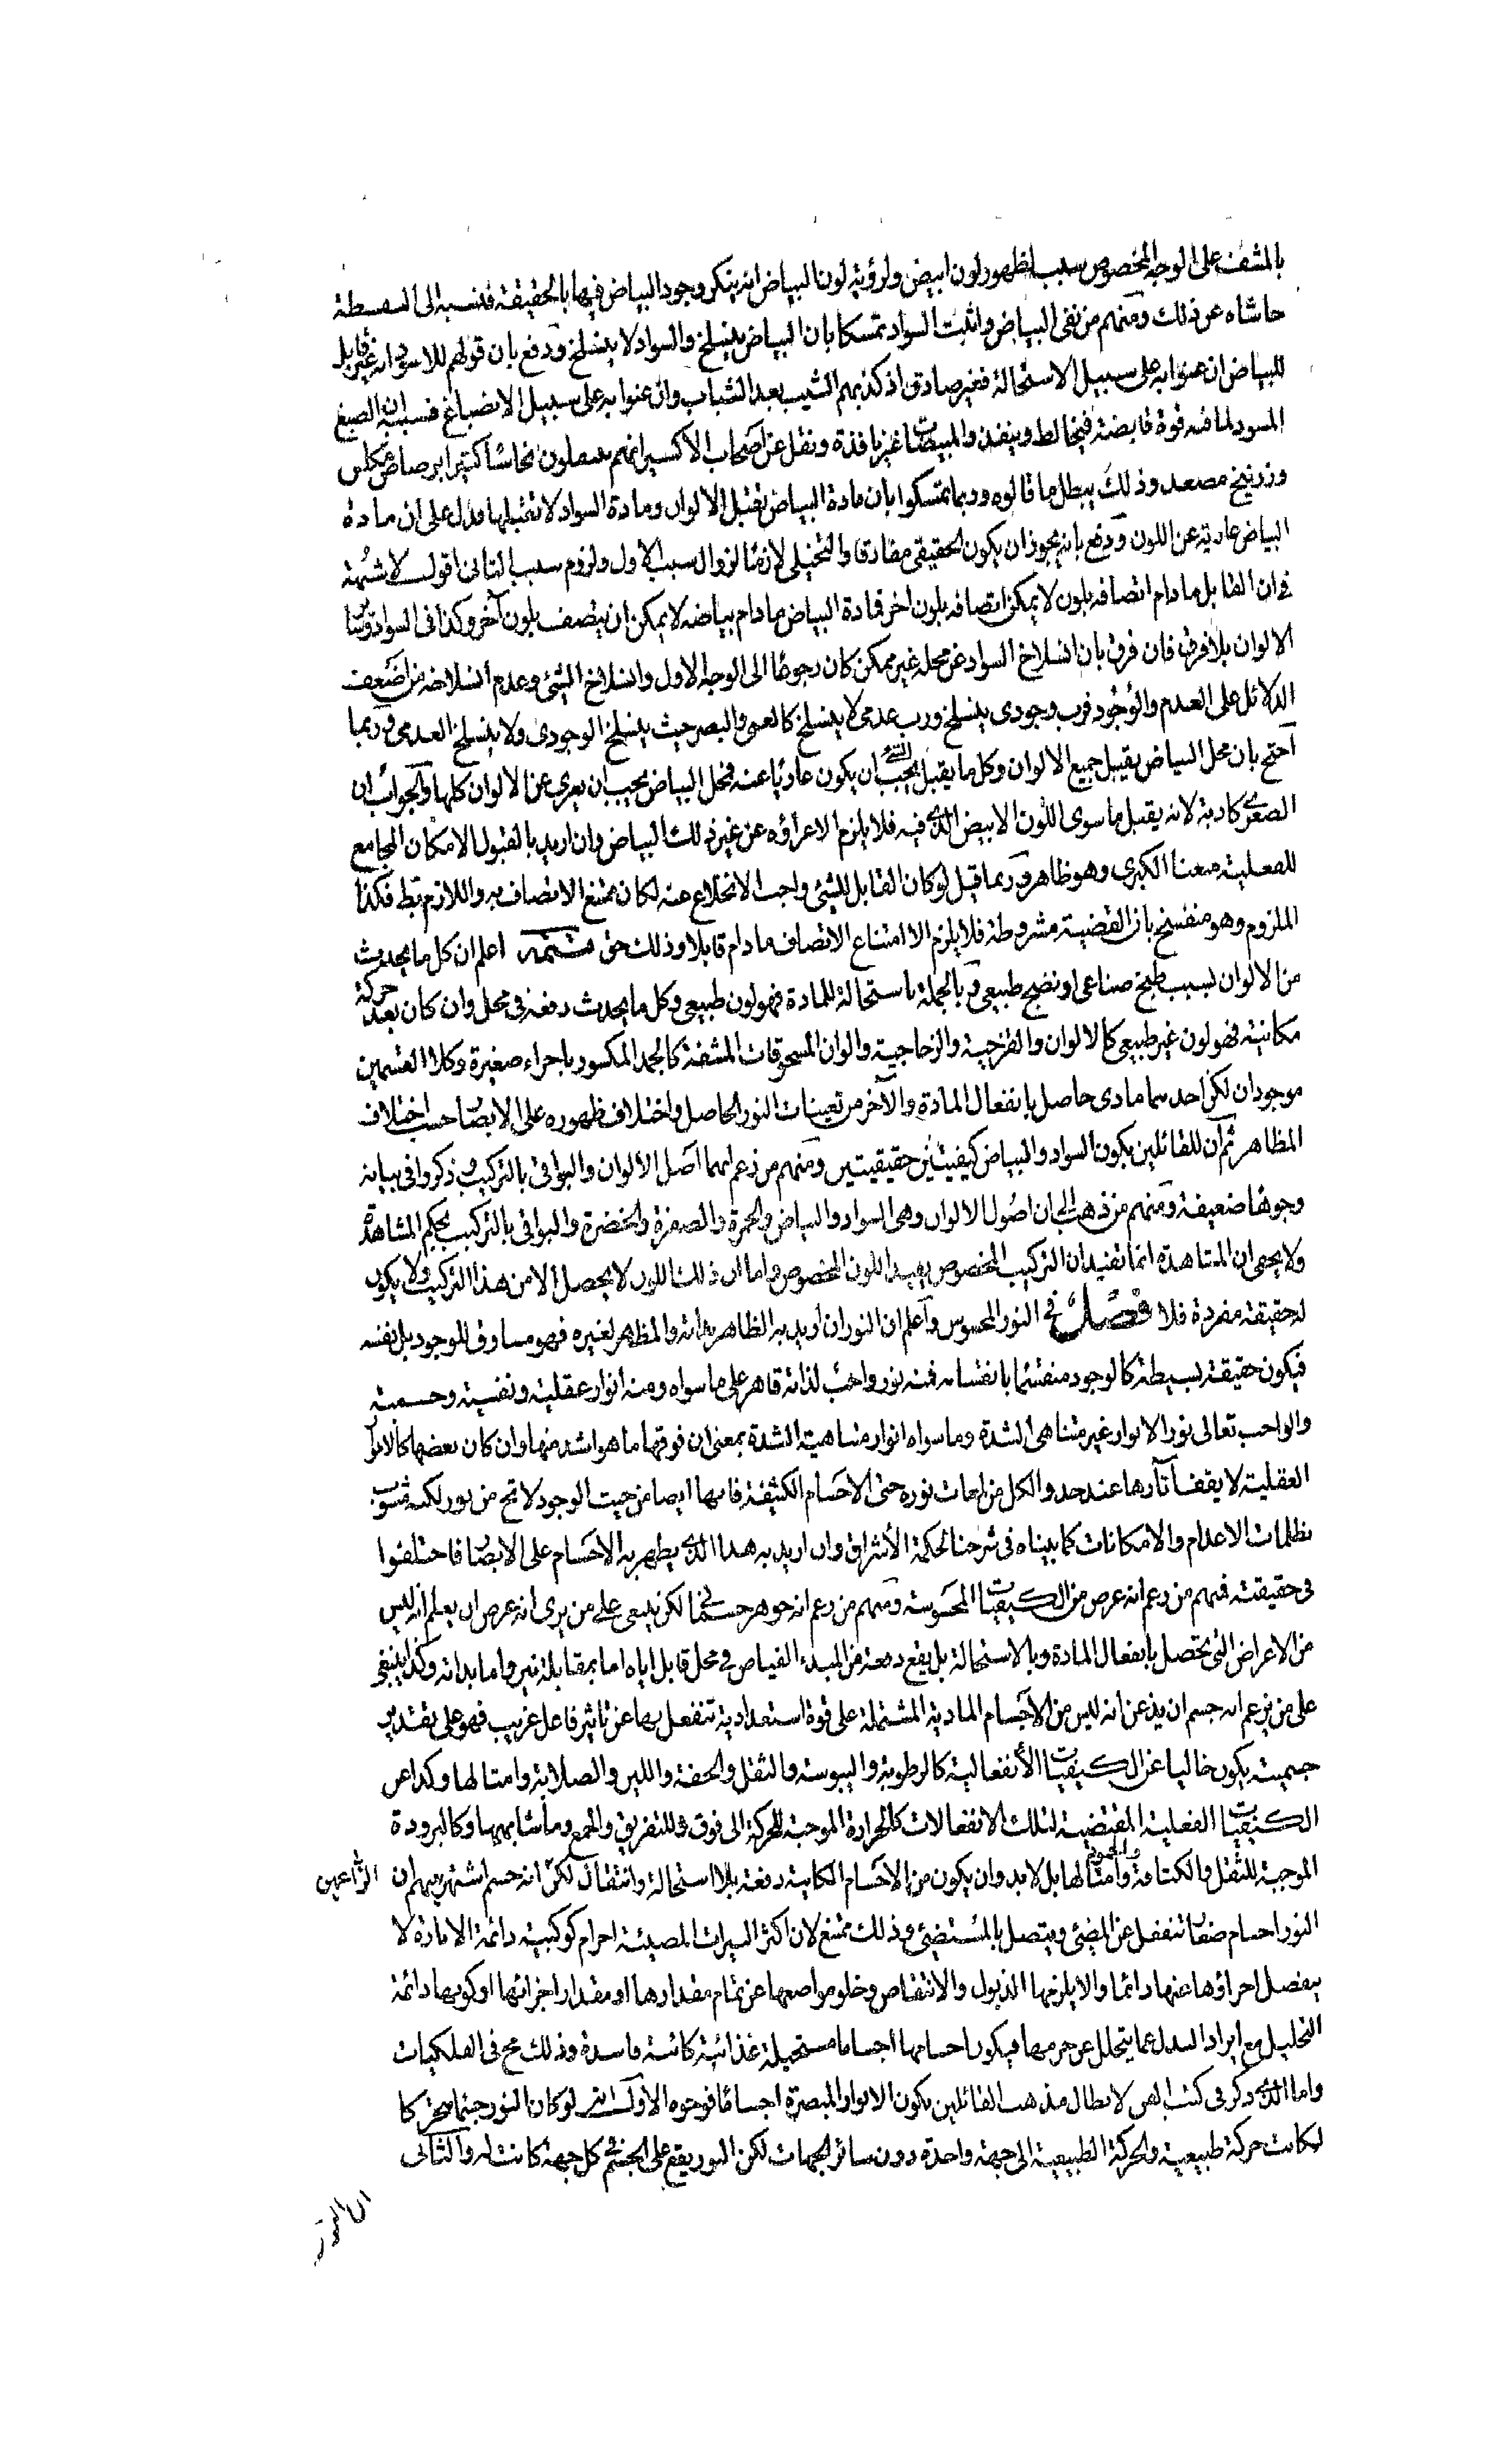 بالمشف على الوجه المخصوص سبب لظهور لون ابيض ولرؤية لون البياض انه ينكر وجود البياض فيها بالحقيقة فنسبه الى السفسطة
حاشاه عن ذلك ومنهم من نفى البياض واثبت السواد تمسكا بان البياض ينسلخ والسواد لا ينسلخ ودفع بان قولهم للاسود انه غير قابل
للبياض ان عنوا به على سبيل الاستحالة فغير صادق اذ كذبهم الشيب بعد الشباب وان عنوا به على سبيل الانصباغ فسببه ان الصبغ
المسود لما فيه قوة قابضة فيخالط وينفذ والمبيضات غير نافذة ونقل عن اصحاب الاكسير انهم يعملون نحاسا كثيرا برصاص مكلس
وزرنيخ مصعد وذلك يبطل ما قالوه وربما تمسكوا بان مادة البياض تقبل الالوان ومادة السواد لا تقبلها فدل على ان مادة
البياض عارية عن اللون ودفع بانه يجوز ان يكون الحقيقى مفارقا والتخيلى لازما لزوال سبب الاول ولزوم سبب الثانى اقول لا شبهة
فى ان القابل ما دام اتصافه بلون لا يمكن اتصافه بلون اخر فمادة البياض ما دام بياضه لا يمكن ان يتصف بلون آخر وكذا فى السواد وسائر
الالوان بلا فرق فان فرق بان انسلاخ السواد عن محله غير ممكن كان رجوعا الى الوجه الاول وانسلاخ الشئ وعدم انسلاخه من اضعف
الدلائل على العدم والوجود فرب وجودى ينسلخ ورب عدمى لا ينسلخ كالعمى والبصر حيث ينسلخ الوجودى ولا ينسلخ العدمى وربما
احتج بان محل البياض يقبل جميع الالوان وكل ما يقبل الشئ يجب ان يكون عاريا عنه فمحل البياض يجب ان يعرى عن الالوان كلها والجواب ان
الصغرى كاذبة لانه يقبل ما سوى اللون الابيض الذى فيه فلا يلزم الا عراؤه عن غير ذلك البياض وان اريد بالقبول الامكان المجامع
للفعلية منعنا الكبرى وهو ظاهر وربما قيل لو كان القابل للشئ واجب الانخلاع عنه لكان ممتنع الاتصاف به واللازم بط فكذا
الملزوم وهو منفسخ بان القضية مشروطة فلا يلزم الا امتناع الاتصاف ما دام قابلا وذلك حق تتمة اعلم ان كل ما يحدث
من الالوان بسبب طبخ صناعى او نضج طبيعى وبالجملة باستحالة للمادة فهو لون طبيعى وكل ما يحدث دفعة فى محل وان كان بعد حركة
مكانية فهو لون غير طبيعى كالالوان والقزحية والزجاجية والوان المسحوقات المشفة كالجمد المكسور باجزاء صغيرة وكلا القسمين
موجودان لكن احدهما مادى حاصل بانفعال المادة والآخر من تعينات النور الحاصل واختلاف ظهوره على الابصار حسب اختلاف
المظاهر ثم ان للقائلين بكون السواد والبياض كيفيتين حقيقيتين ومنهم من زعم انهما اصل الالوان والبواقى بالتركيب وذكروا فى بيانه
وجوها ضعيفة ومنهم من ذهب الى ان اصول الالوان وهى السواد والبياض والحمرة والصفرة والخضرة والبواقى بالتركيب بحكم المشاهدة
ولا يخفى ان المشاهدة انما تفيد ان التركيب المخصوص يفيد اللون المخصوص واما ان ذلك اللون لا يحصل الا من هذا التركيب ولا يكون
له حقيقة مفردة فلا فصل فى النور المحسوس واعلم ان النور ان اريد به الظاهر بذاته والمظهر لغيره فهو مساوق للوجود بل نفسه
فيكون حقيقة بسيطة كالوجود منقسما بانقسامه فمنه نور واجب لذاته قاهر على ما سواه ومنه انوار عقلية ونفسية وجسمية
والواجب تعالى نور الانوار غير متناهى الشدة وما سواه انوار متناهية الشدة بمعنى ان فوقها ما هو اشد منها وان كان بعضها كالانوار
العقلية لا يقف آثارها عند حد والكل من لمعات نوره حتى الاجسام الكثيفة فانها ايضا من حيث الوجود لا تخ من نور لكنه مشوب
بظلمات الاعدام والامكانات كما بيناه فى شرحنا لحكمة الاشراق وان اريد به هذا الذى يظهر به الاجسام على الابصار فاختلفوا
فى حقيقته فمنهم من زعم انه عرض من الكيفيات المحسوسة ومنهم من زعم انه جوهر جسمانى لكن ينبغى على من يرى انه عرض ان يعلم انه ليس
من الاعراض التى تحصل بانفعال المادة وبالاستحالة بل يقع دفعة من المبدء الفياض فى محل قابل اياه اما بمقابلة نير واما بذاته وكذا ينبغى
على من يزعم انه جسم ان يذعن انه ليس من الاجسام المادية المشتملة على قوة استعدادية تنفعل بها عن تاثير فاعل غريب فهو على تقدير
جسميته يكون خاليا عن الكيفيات الانفعالية كالرطوبة واليبوسة والثقل والخفة واللين والصلابة وامثالها وكذا عن
الكيفيات الفعلية المقتضية لتلك الانفعالات كالحرارة الموجبة للحركة الى فوق وللتفريق والجمع وما شابههما وكالبرودة
الموجبة للثقل والكثافة والجمود وامثالها بل لا بد وان يكون من الاجسام الكاينة دفعة بلا استحالة وانتقال لكن انه جسم اشتهر بينهم ان الزاعمين
النور اجسام صغار تنفصل عن المضئ ويتصل بالمستضئ وذلك ممتنع لان اكثر النيرات المضيئة اجرام كوكبية دائمة الانارة لا
ينفصل اجزاؤها عنها دائما والا يلزمها الذبول والانتقاص وخلو مواضعها عن تمام مقدارها او مقدار اجزائها او كونها دائمة
التحليل مع ايراد البدل عما يتحلل عن جرمها فيكون اجسامها اجساما مستحيلة غذائية كائنة فاسدة وذلك مح فى الفلكيات
واما الذى ذكر فى كتب القوم لابطال مذهب القائلين بكون الانوار المبصرة اجساما فوجوه الاول انه لو كان النور جسما متحركا
لكانت حركة طبيعية والحركة الطبيعية الى جهة واحدة دون سائر الجهات لكن النور يقع على الجسم فى كل جهة كانت له والثانى
ان النور